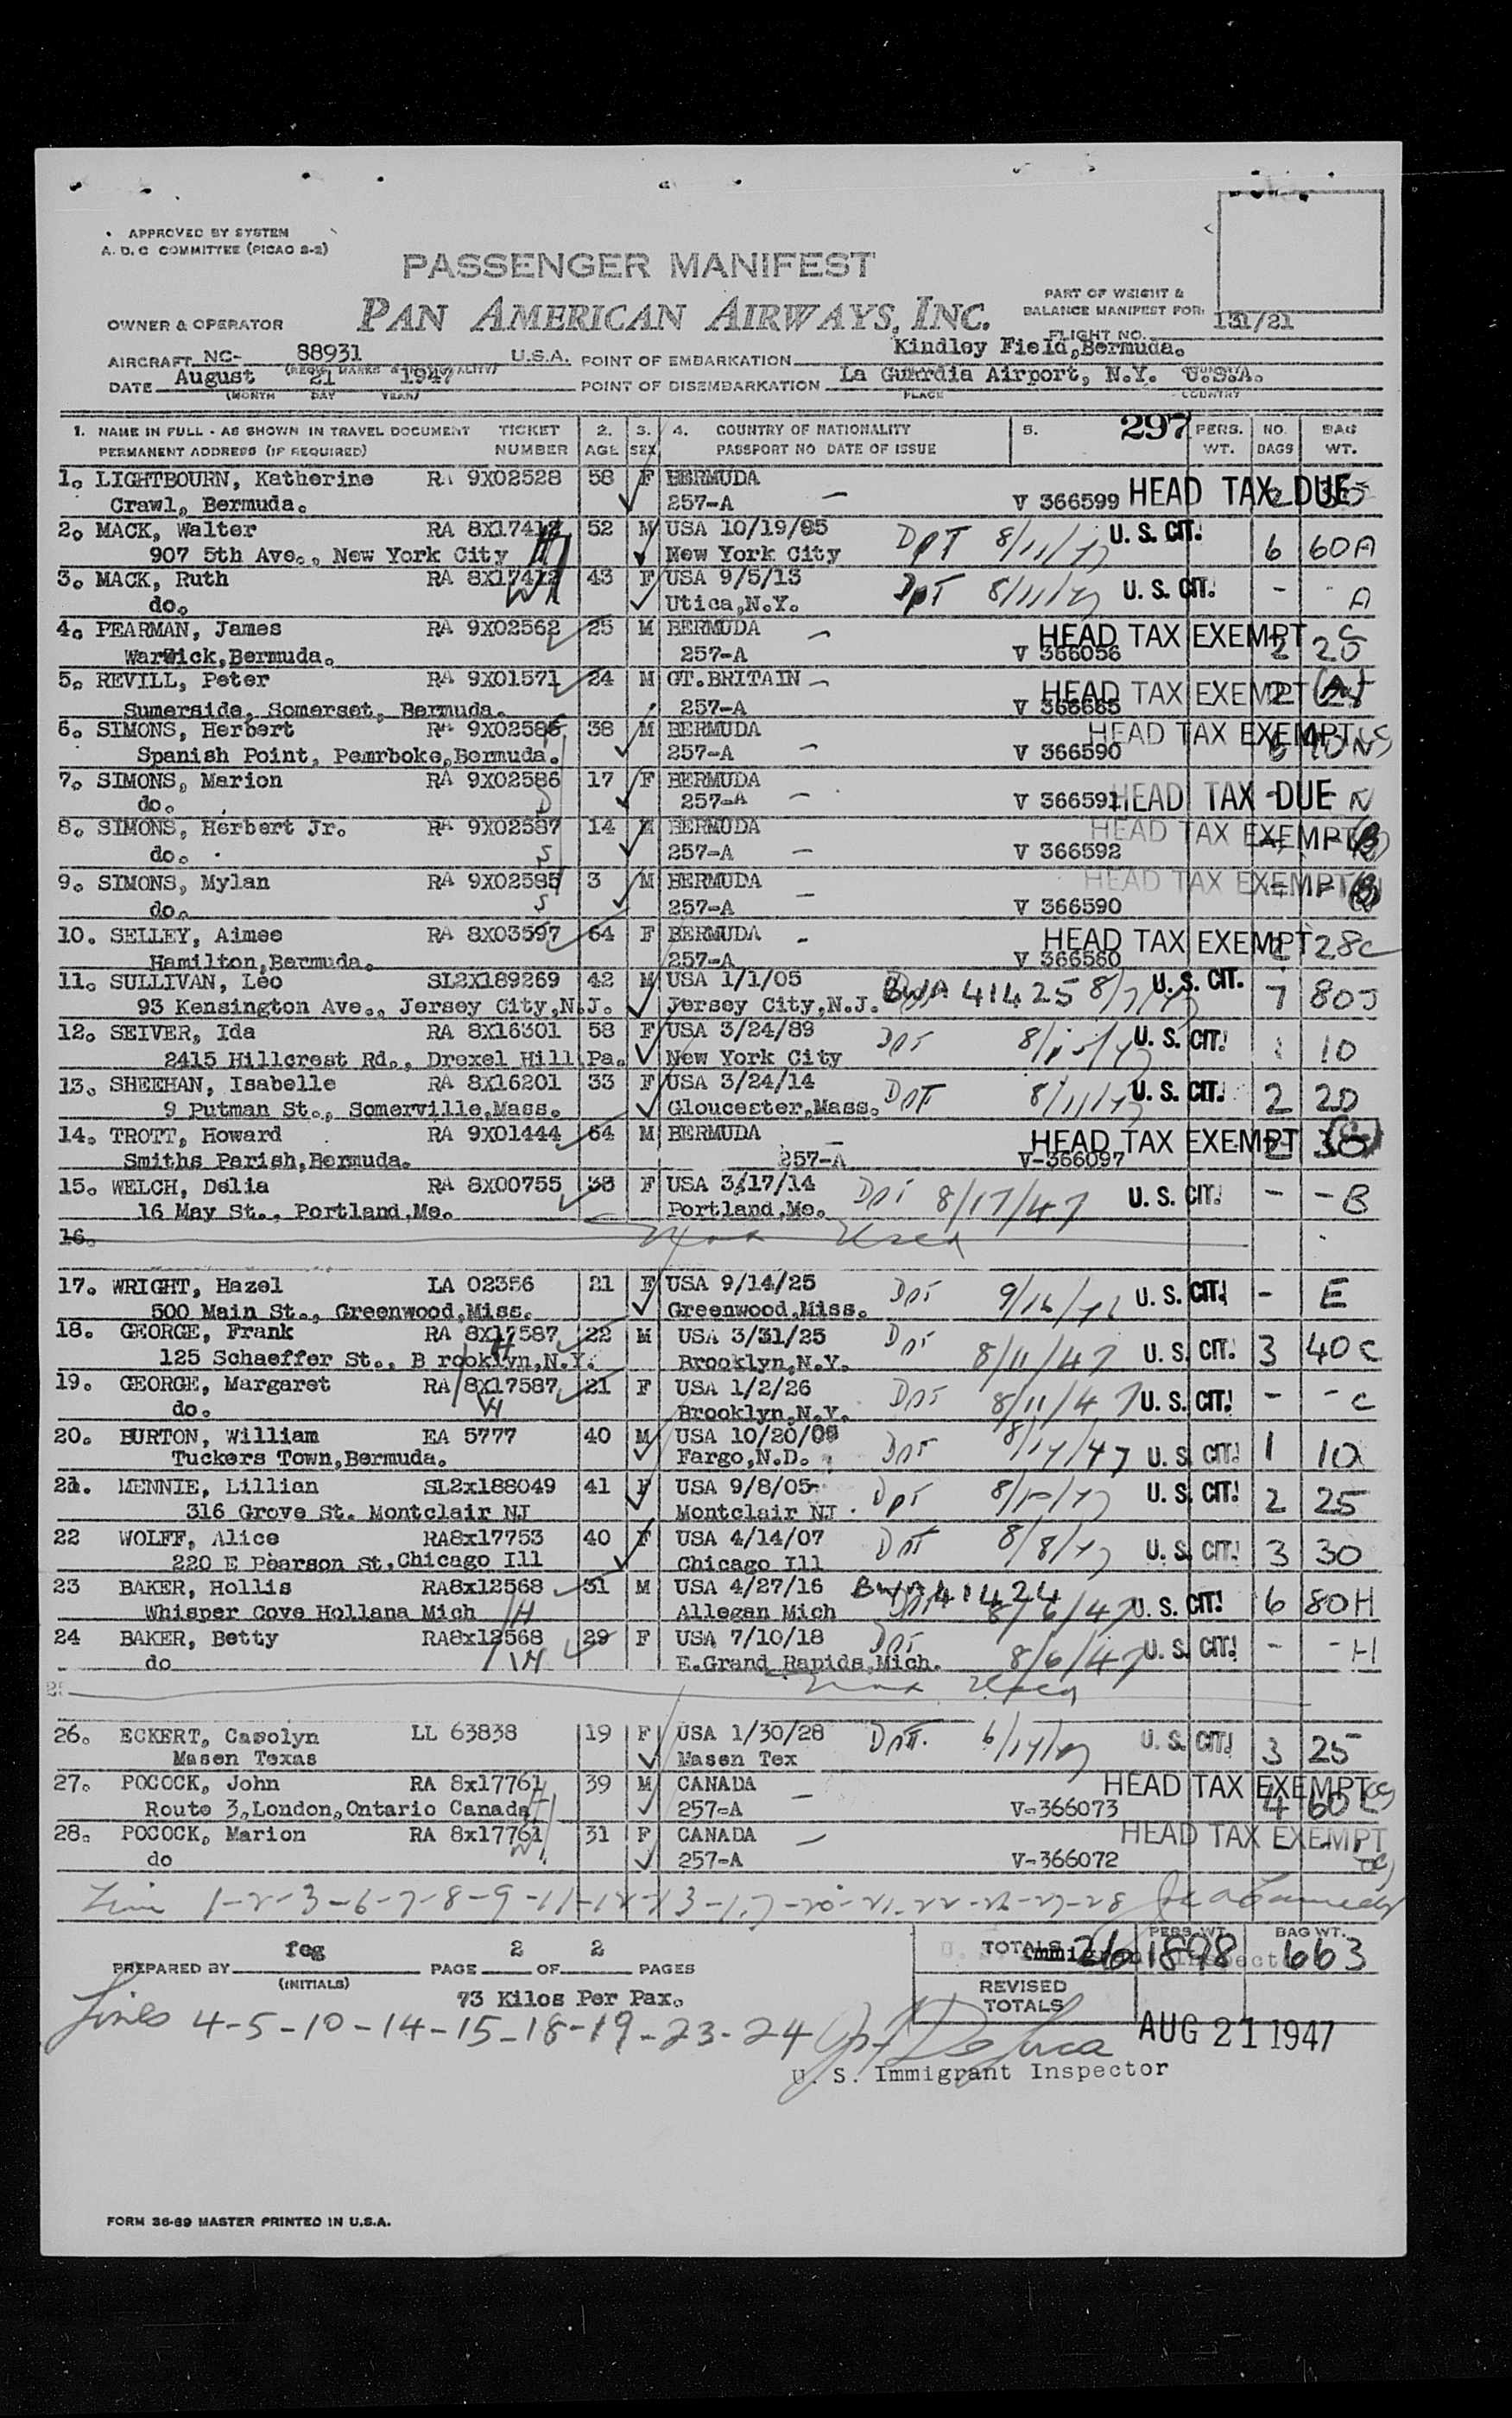 APPROVED BY SYSTEM
A. D. C COMMITTEE (PICAO S-2)
PASSENGER MANIFEST
PAN AMERICAN AIRWAYS, INC.
PART OF WEIGHT &
BALANCE MANIFEST FOR:
OWNER & OPERATOR
FLIGHT NO. 131/21
AIRCRAFT NC- 88931 U.S.A. POINT OF EMBARKATION Kindley Field, Bermuda.
DATE August 21 1947 POINT OF DISEMBARKATION La Guardia Airport, N.Y. U.S.A.
(MONTH DAY YEAR) PLACE COUNTRY
1. NAME IN FULL - AS SHOWN IN TRAVEL DOCUMENT TICKET 2. 3. 4. COUNTRY OF NATIONALITY 5. 297 PERS. NO. BAG
PERMANENT ADDRESS (IF REQUIRED) NUMBER AGE SEX PASSPORT NO DATE OF ISSUE WT. BAGS WT.
1. LIGHTBOURN, Katherine RA 9X02528 58 F BERMUDA
Crawl, Bermuda. 257-A — V 366599 HEAD TAX DUE
2. MACK, Walter 52 M USA 10/19/95 DPT 8/11/47 U. S. CIT.
907 5th Ave., New York City New York City 6 60A
3. MACK, Ruth RA 8X17412 43 F USA 9/5/13 DPT 8/11/47 U. S. CIT. -
do. Utica, N.Y. A
4. PEARMAN, James RA 9X02562 25 M BERMUDA — HEAD TAX EXEMPT
Warwick, Bermuda. 257-A V 366056 2
5. REVILL, Peter RA 9X01571 24 M GT. BRITAIN — HEAD TAX EXEMPT
Sumerside, Somerset, Bermuda. 257-A V 366665
6. SIMONS, Herbert RA 9X02585 38 M BERMUDA HEAD TAX EXEMPT
Spanish Point, Pemrboke, Bermuda. 257-A — V 366590
7. SIMONS, Marion RA 9X02586 17 F BERMUDA
do. 257-A — V 366591 HEAD TAX DUE - N
8. SIMONS, Herbert Jr. RA 9X02587 14 M BERMUDA HEAD TAX EXEMPT
do. S 257-A — V 366592
9. SIMONS, Mylan RA 9X02585 3 M BERMUDA HEAD TAX EXEMPT
do. S 257-A — V 366590
10. SELLEY, Aimee RA 8X03597 64 F BERMUDA - HEAD TAX EXEMPT 2 28C
Hamilton, Bermuda. 257-A V 366560
11. SULLIVAN, Leo SL2X189269 42 M USA 1/1/05 U. S. CIT.
93 Kensington Ave., Jersey City, N.J. Jersey City, N.J. BWA 41425 7 80J
12. SEIVER, Ida RA 8X16301 58 F USA 3/24/89 DPT U. S. CIT. 1 10
2415 Hillcrest Rd., Drexel Hill Pa. New York City
13. SHEEHAN, Isabelle RA 8X16201 33 F USA 3/24/14 DPT 8/11/47 U. S. CIT. 2 20
9 Putman St., Somerville, Mass. Gloucester, Mass.
14. TROTT, Howard RA 9X01444 64 M BERMUDA — HEAD TAX EXEMPT
Smiths Parish, Bermuda. 257-A V-366097
15. WELCH, Delia RA 8X00755 38 F USA 3/17/14 DPT 8/17/47 U. S. CIT. - - B
16 May St., Portland, Me. Portland, Me.
16. Not Used
17. WRIGHT, Hazel LA 02356 21 F USA 9/14/25 DPT 9/16/46 U. S. CIT. - E
500 Main St., Greenwood, Miss. Greenwood, Miss.
18. GEORGE, Frank RA 8X17587 22 M USA 3/31/25 DPT 8/11/47 U. S. CIT. 3 40C
125 Schaeffer St., B rooklyn, N.Y. Brooklyn, N.Y.
19. GEORGE, Margaret RA 8X17587 21 F USA 1/2/26 DPT 8/11/47 U. S. CIT. - - C
do. Brooklyn, N.Y.
20. BURTON, William EA 5777 40 M USA 10/20/06
Tuckers Town, Bermuda. Fargo, N.D. DPT 8/14/47 U. S. CIT. 1 10
21. MENNIE, Lillian SL2x188049 41 F USA 9/8/05 DPT U. S. CIT. 2 25
316 Grove St. Montclair NJ Montclair NJ
22 WOLFF, Alice RA8x17753 40 F USA 4/14/07 DPT 8/8/47 U. S. CIT. 3 30
220 E Pearson St, Chicago Ill Chicago Ill
23 BAKER, Hollis RA8x12568 31 M USA 4/27/16 BWA 41424
Whisper Cove Hollana Mich Allegan Mich 8/6/47 U. S. CIT. 6 80H
24 BAKER, Betty RA8x12568 29 F USA 7/10/18 DPT 8/6/47 U. S. CIT. - - H
do E.Grand Rapids, Mich.
Not Used
26. ECKERT, Carolyn LL 63838 19 F USA 1/30/28 DPT. U. S. CIT. 3 25
Masen Texas Masen Tex
27. POCOCK, John RA 8x17761 39 M CANADA HEAD TAX EXEMPT
Route 3, London, Ontario Canada 257-A — V-366073 4 60
28. POCOCK, Marion RA 8x17761 31 F CANADA — HEAD TAX EXEMPT
do 257-A V-366072
Line 1-2-3-6-7-8-9-11-12-13-17-20-21-22-26-27-28
PREPARED BY feg PAGE 2 OF 2 PAGES TOTALS 26 PERS. WT. 1898 BAG WT. 663
(INITIALS) REVISED
73 Kilos Per Pax. TOTALS
Lines 4-5-10-14-15-18-19-23-24 AUG 21 1947
U. S. Immigrant Inspector
FORM 36-69 MASTER PRINTED IN U.S.A.